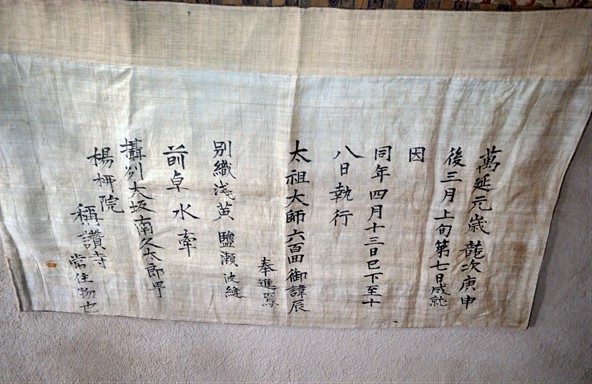 萬延元歳 龍次庚申
後三月上旬第七日成就
因
同年四月十三日已下至十
八日執行
太祖大師六百回御諱辰
奉進焉
別織淺黄 鹽瀬波縫
前卓水牽
攝州大坂南久太郎甼
楊枊院
稱讃寺
常住物也